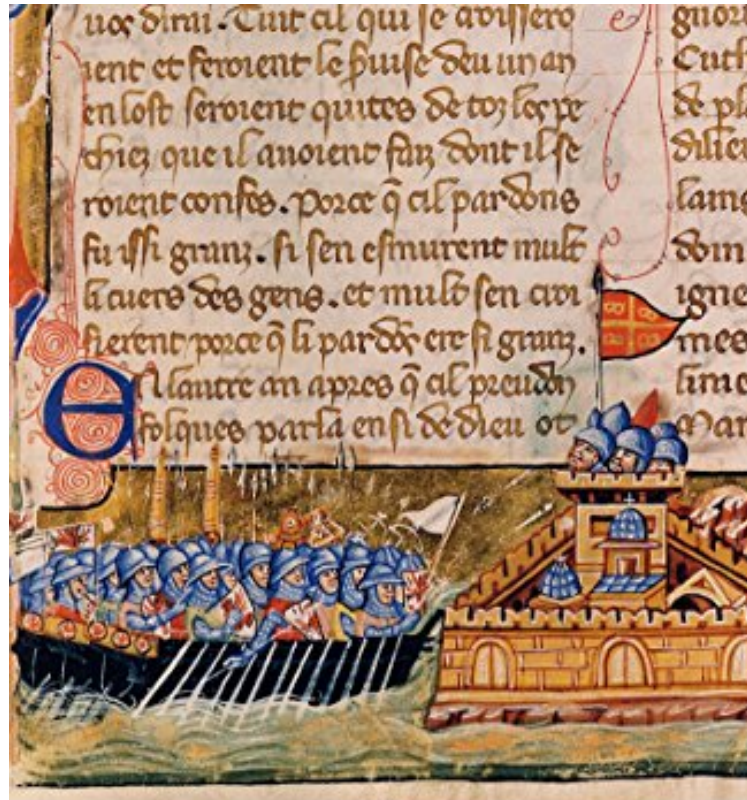 uos dirai. Tuit cil qui se croissero
ient et feroient le s̃uise deu un an
en lost seroient quites de toz les pe
chiez que il auoient faiz dont il se
roient confes. Porce q̃ cil pardons
fu issi granz. si sen esmurent mult
li cuers des gens. et mult sen croi
sierent porce q̃ li pardõs ere si granz.
EN lautre an apres q̃ cil preudon
folques parla ensi de dieu ot
gnor
de pl
lains
dom
igne
mes
lime
Mar